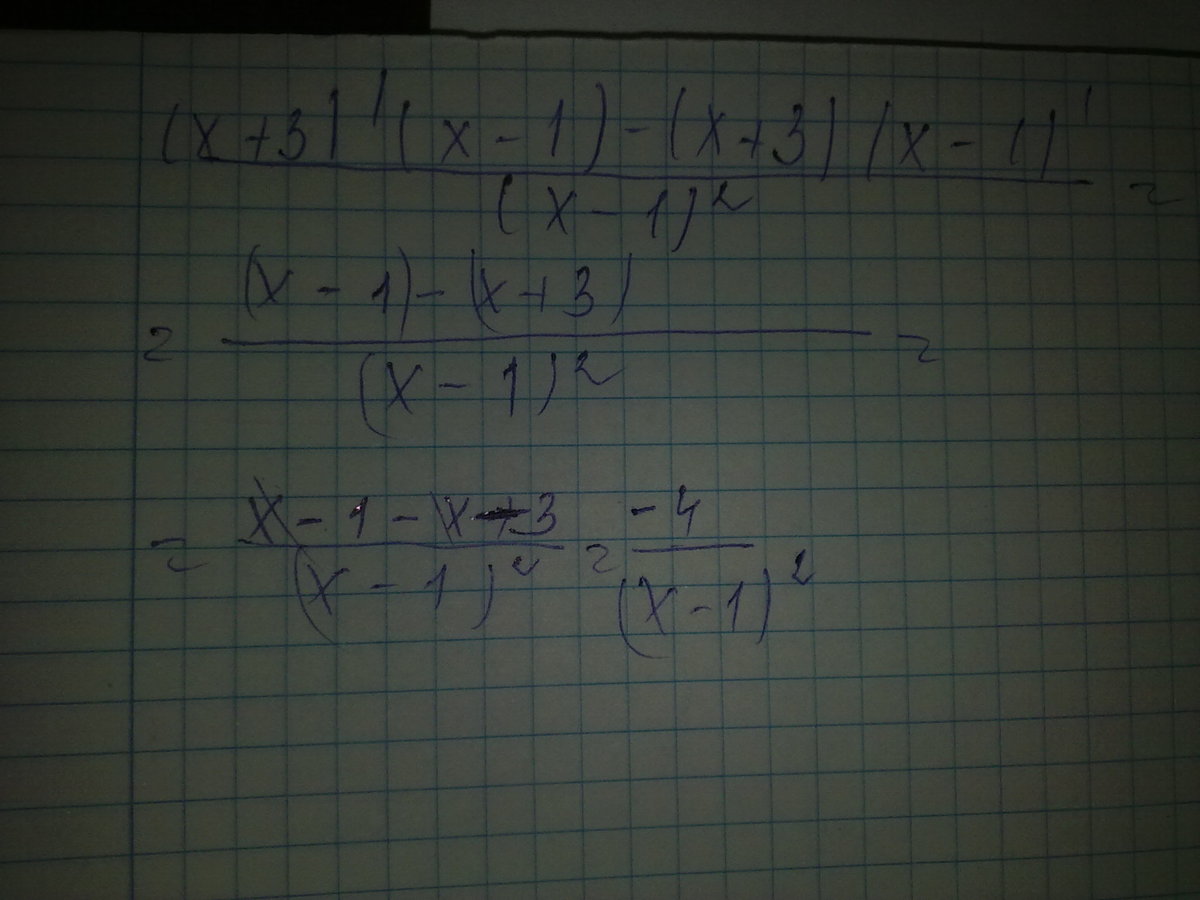 (x+3)'(x-1)-(x+3)(x-1)'
(x-1)² =
= (x-1)-(x+3)
(x-1)² =
= x-1-x-3 = -4
(x-1)² (x-1)²